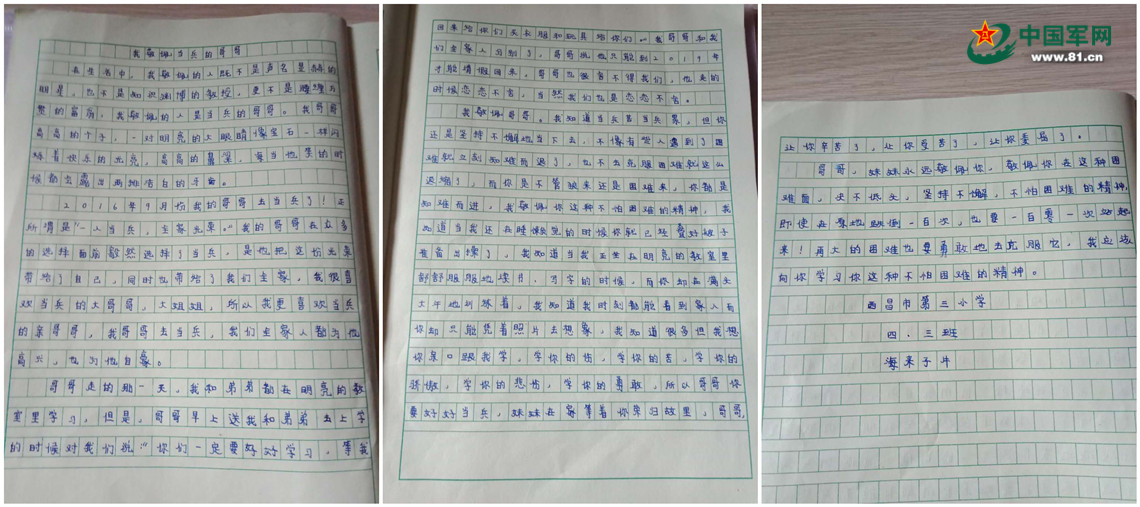 我敬佩当兵的哥哥
在生活中，我敬佩的人既不是声名显赫的
明星，也不是知识渊博的教授，更不是腰缠万
贯的富翁，我敬佩的人是当兵的哥哥。我哥哥
高高的个子，一对明亮的大眼睛像宝石一样闪
烁着快乐的光亮，高高的鼻梁，每当他笑的时
候都会露出两排洁白的牙齿。
2016年9月份我的哥哥去当兵了！正
所谓是“一人当兵，全家光荣。”我的哥哥在众多
的选择面前毅然选择了当兵，是他把这份光荣
带给了自己，同时也带给了我们全家，我很喜
欢当兵的大哥哥，大姐姐，所以我更喜欢当兵
的亲哥哥，我哥哥去当兵，我们全家人都为他
高兴，也为他自豪。
哥哥走的那一天，我和弟弟都在明亮的教
室里学习，但是，哥哥早上送我和弟弟去上学
的时候对我们说“你们一定要好好学习，等我
回来给你们买衣服和玩具给你们。”我哥哥和我
们全家人分别了，哥哥说他只能到2019年
才能请假回来。哥哥也很舍不得我们，他走的
时候恋恋不舍，当然我们也是恋恋不舍。
我敬佩哥哥。我知道当兵苦当兵累，但你
还是坚持不懈地当下去，不像有些人遇到了困
难就立刻知难而退了，也不去克服困难就这么
退缩了，而你是不管谁来还是困难来，你都是
知难而进，我敬佩你这种不怕困难的精神，我
知道当我还在睡懒觉的时候你就已经叠好被子
准备出操了，我知道当我正坐在明亮的教室里
舒舒服服地读书，习字的时候，而你却在满头
大汗地训练着，我知道我时刻都能看到家人而
你却只能凭着照片去想象，我知道很多但我想
你亲口跟我学。学你的伤，学你的苦，学你的
骄傲，学你的悲伤，学你的勇敢，所以哥哥你
要好好当兵，妹妹在家等着你荣归故里，哥哥，
让你辛苦了，让你受苦了，让你委屈了。
哥哥，妹妹永远敬佩你，敬佩你在这种困
难面，决不低头，坚持不懈，不怕困难的精神，
即使在原地跌倒一百次，也要一百零一次站起
来！再大的困难也要勇敢地去克服它，我应该
向你学习你这种不怕困难的精神。
西昌市第三小学
四．三班
海来子牛
中国军网
www.81.cn